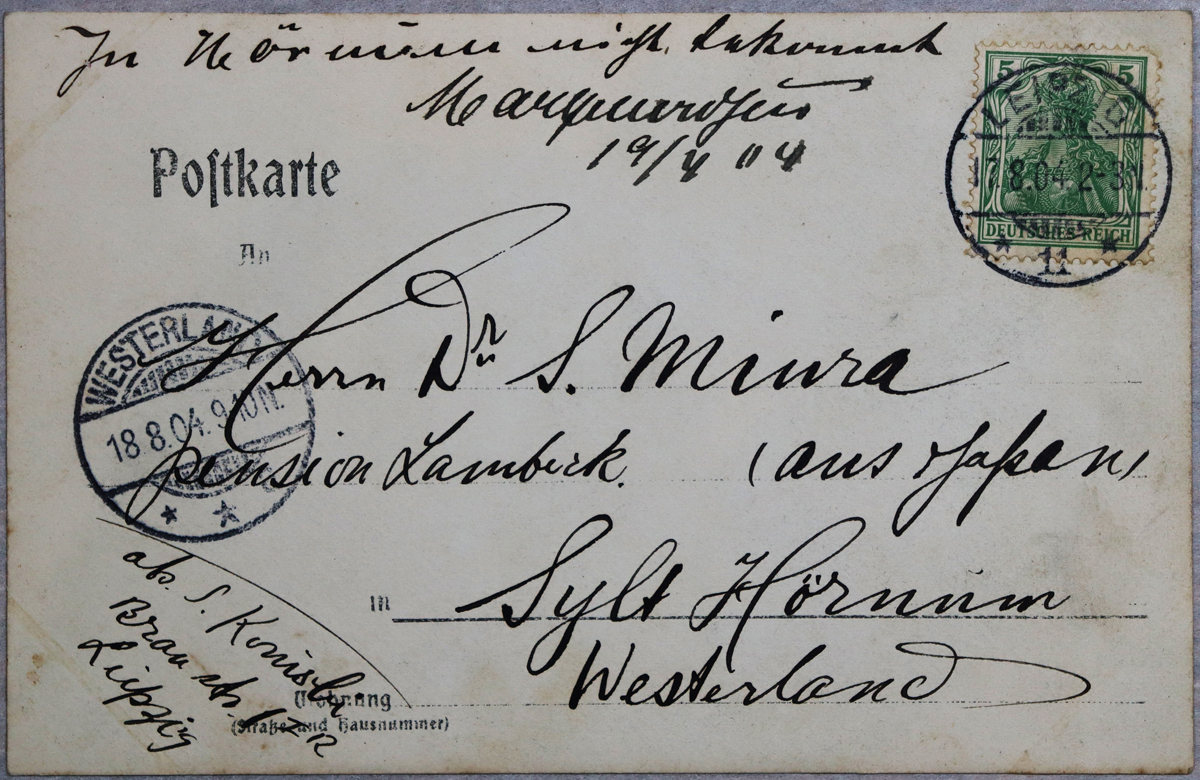 In Hörnum nicht bekannt
Marquardsen
19/4 04
5 5
LEIPZIG
17.8.04. 2-3N.
DEUTSCHES REICH
11
Postkarte
An
WESTERLAND
18.8.04. 9-10N.
Herrn Dr. S. Miura
pension Lambeck. (aus Japan)
in Sylt Hörnum
Westerland
abs. S.
Braustr.
Leipzig
Wohnung
(Straße und Hausnummer)